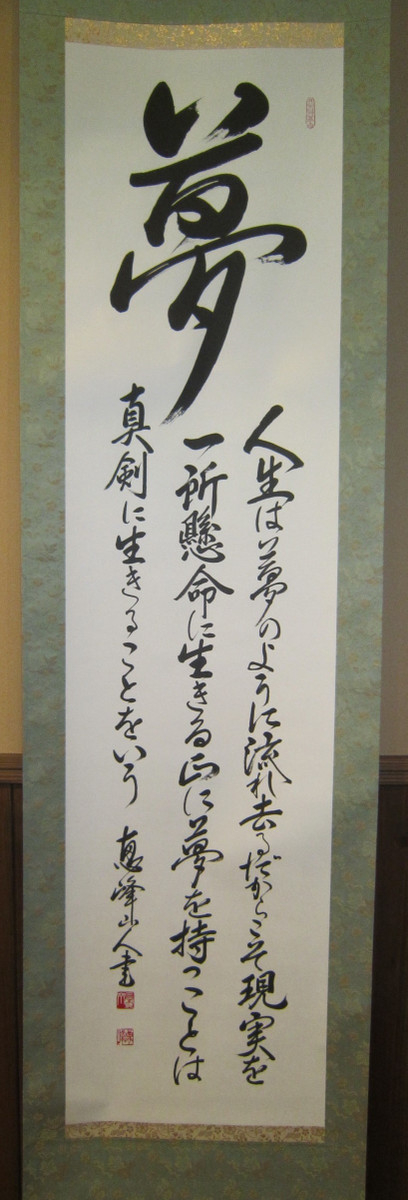 夢
人生は夢のように流れ去るだからこそ現実を
一所懸命に生きる正に夢を持つことは
真剣に生きることをいう
恵峰山人書